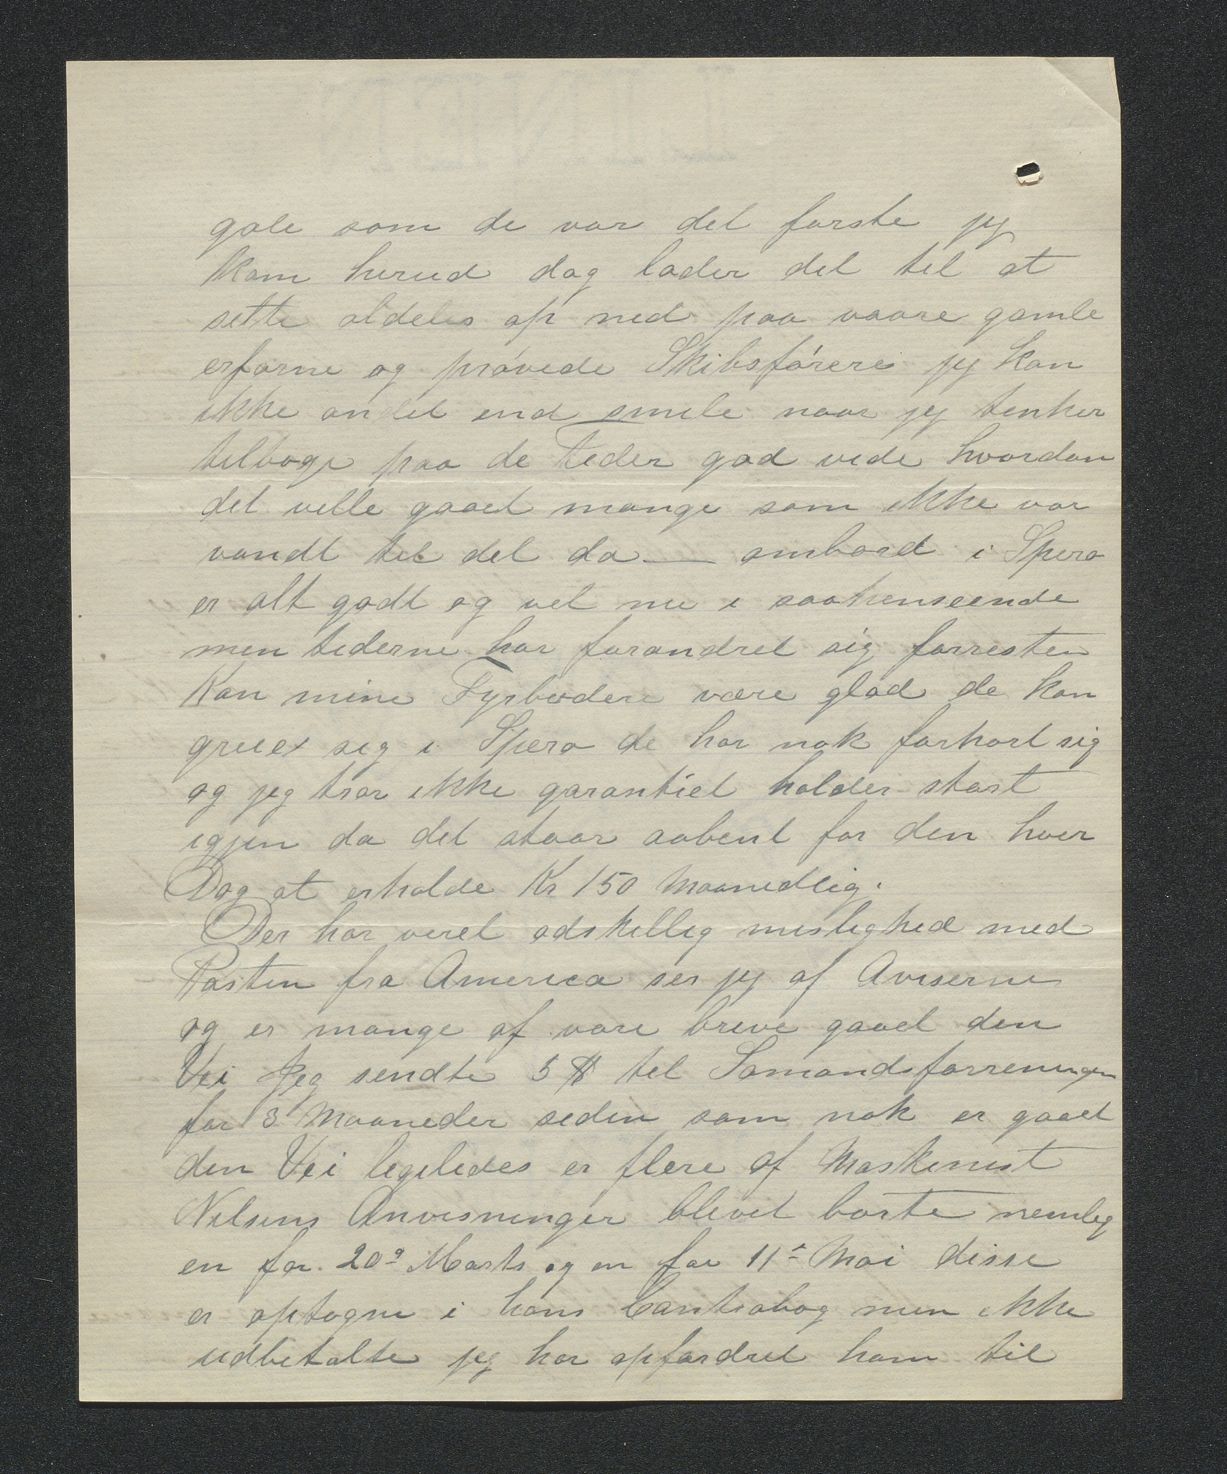 gale som de var det forste jeg
kom herud dog lader det til at
sette aldeles op ned paa vaare gamle
erfarne og prøvede Skibsførere jeg kan
ikke andet end smile naar jeg tenker
tilbage paa de teder gad vide hvordan
det ville gaaet mange som ikke var
vandt til det da — ombord i Spero
er alt godt og vel nu i saahenseende
men tederne har forandret sig forresten
Kan mine Fyrbødere være glad de kan
i Spero de har nok forhort sig
og jeg tror ikke garantiet holder stort
igjen da det staar aabent for den hver
Dag at erholde Kr 150 Maanedlig.
Der har veret adskellig mislighed med
Posten fra America ser jeg af Aviserne
og er mange af vore breve gaaet den
Vei Jeg sendte 5 $ til Somandsforreningen
for 3 Maaneder seden som nok er gaaet
den Vei legeledes er flere af Maskinist
Nilsens Anvisninger blevet borte nemleg
en for 20de Marts og en for 11te Mai disse
er optagne i hans Contrabog men ikke
udbetalte jeg har opfordret ham til